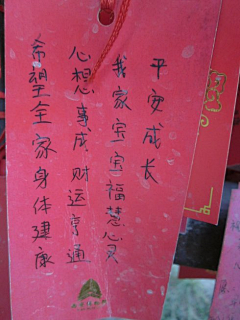 希望全家身体健康
心想事成财运亨通
我家宝宝福慧心灵
平安成长